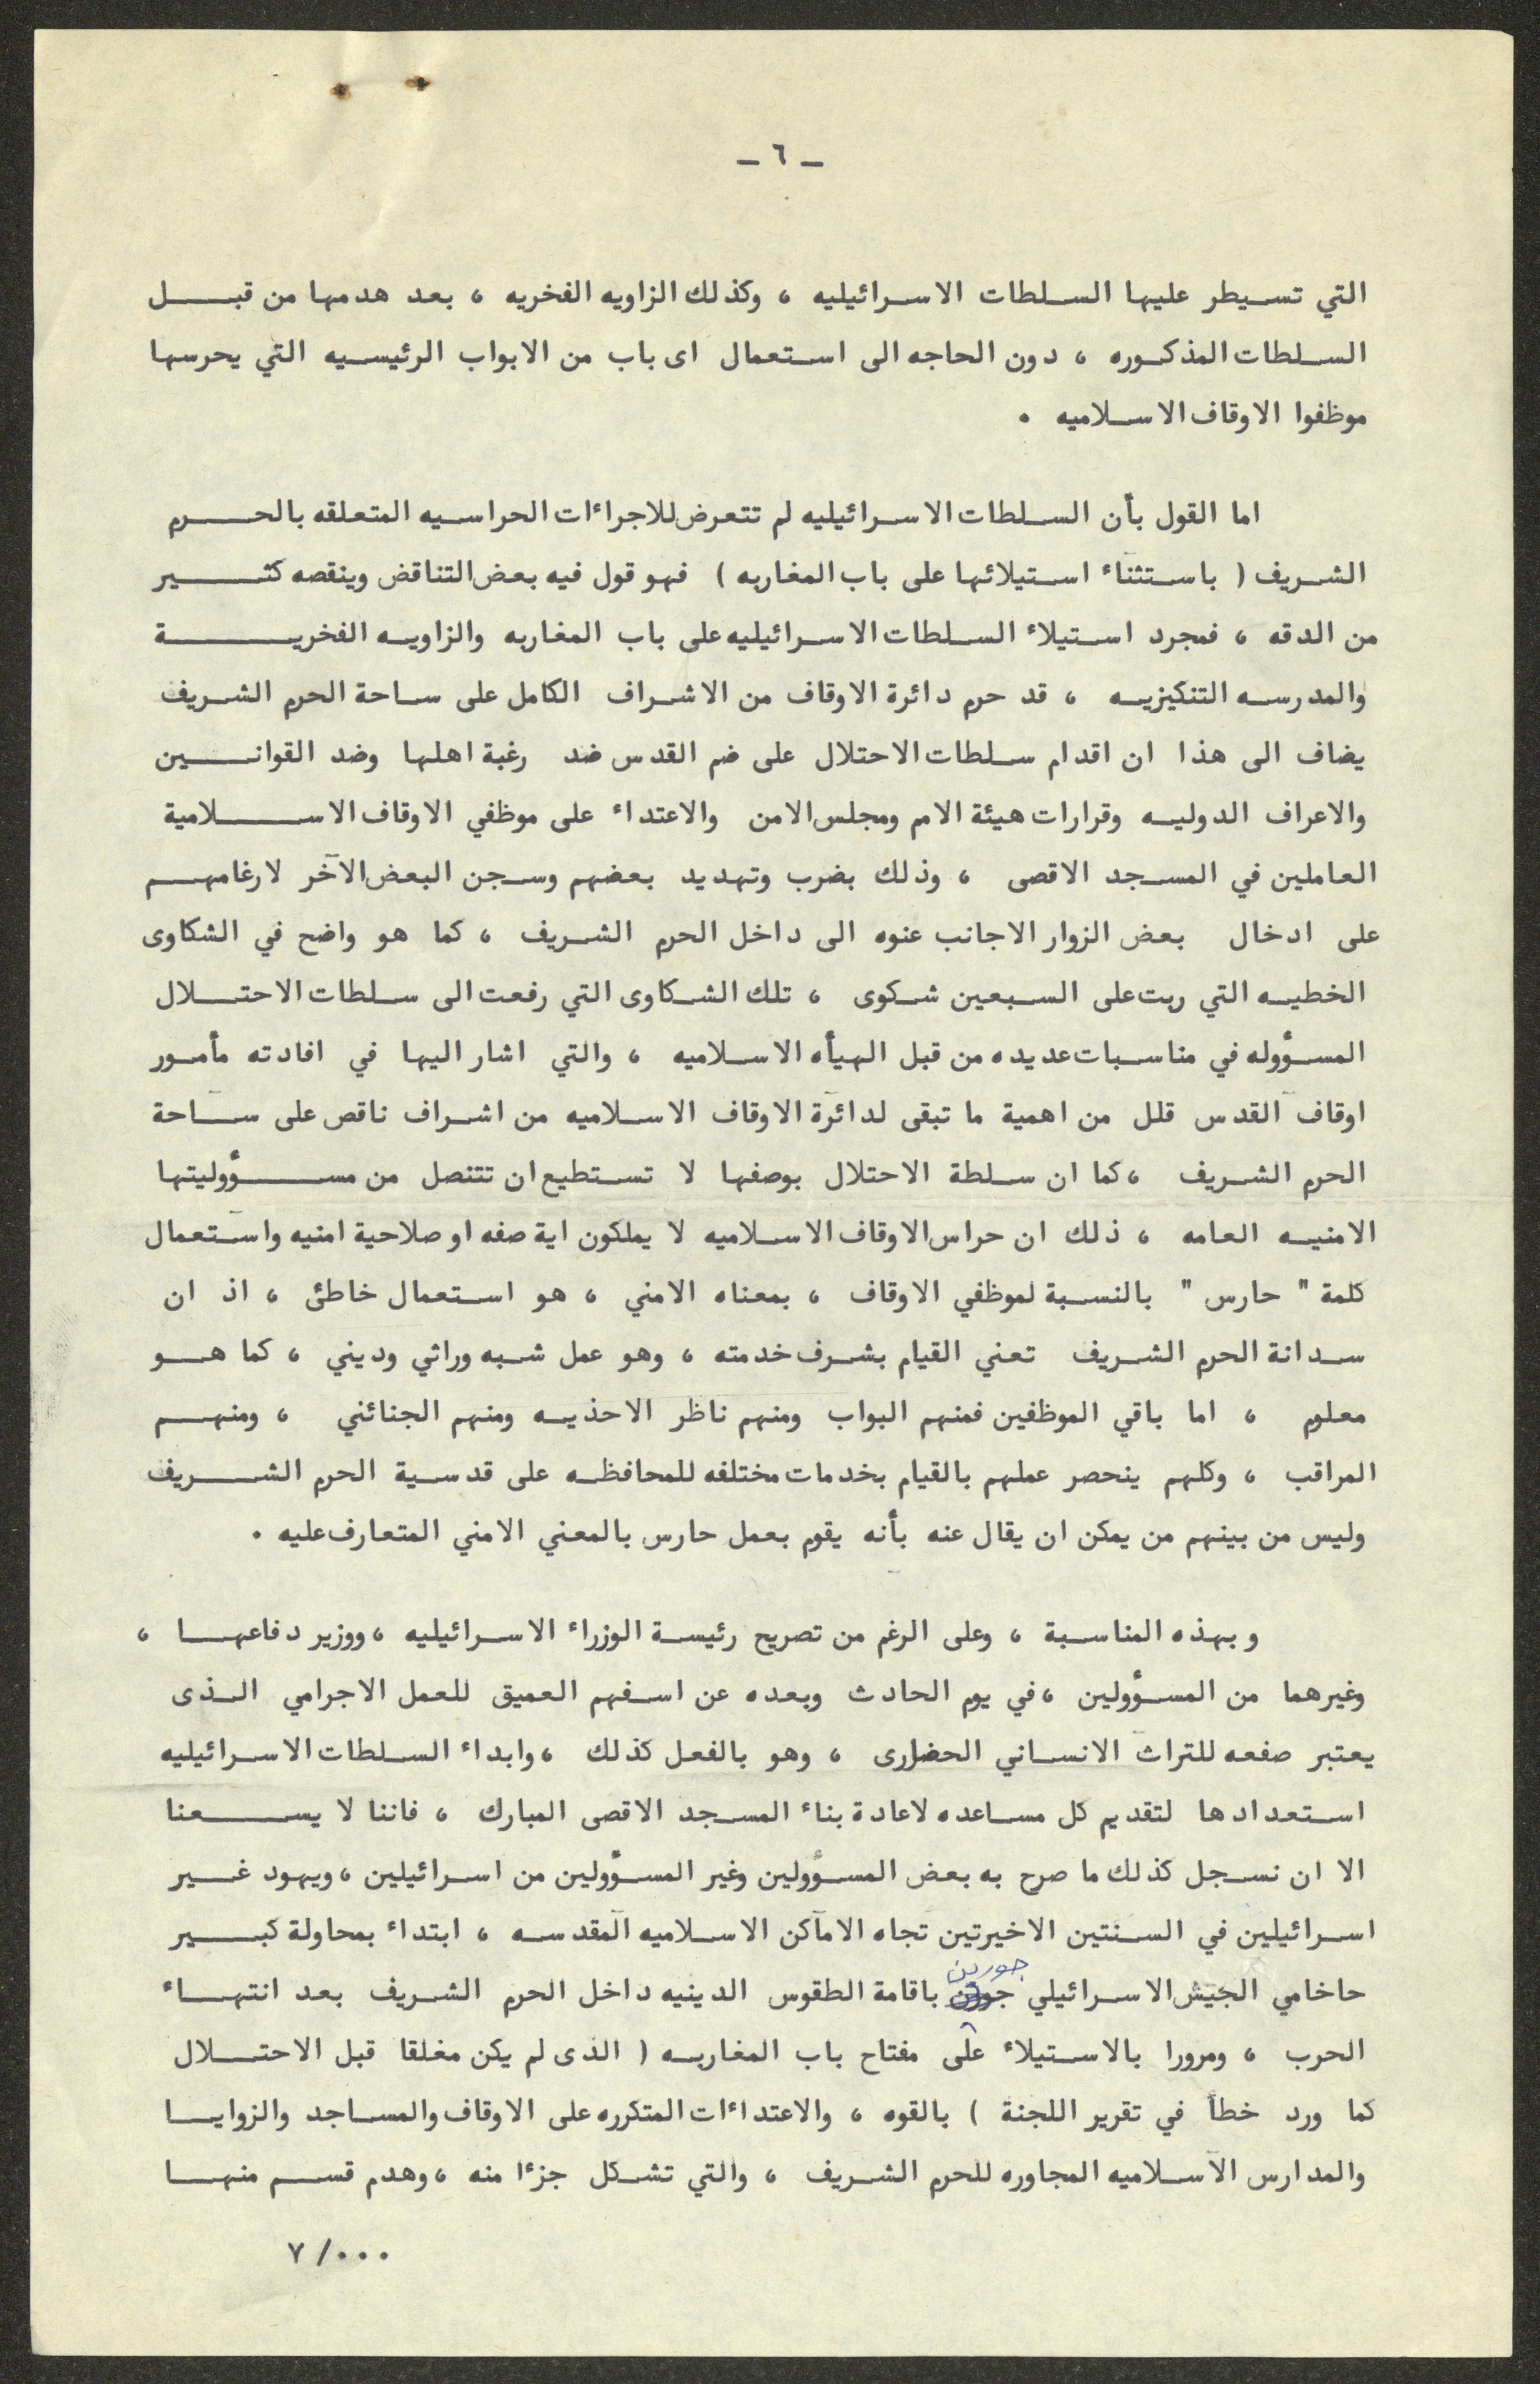 ـ ٦ ـ
التي تسيطر عليها السلطات الاسرائيليه ، وكذلك الزاويه الفخريه ، بعد هدمها من قبل
السلطات المذكوره ، دون الحاجه الى استعمال اى باب من الابواب الرئيسيه التي يحرسها
موظفوا الاوقاف الاسلاميه .
اما القول بأن السلطات الاسرائيليه لم تتعرض للاجراءات الحراسيه المتعلقه بالحرم
الشريف ( باستثناء استيلائها على باب المغاربه ) فهو قول فيه بعض التناقض وينقصه كثير
من الدقه ، فمجرد استيلاء السلطات الاسرائيليه على باب المغاربه والزاويه الفخرية
والمدرسه التنكيزيه ، قد حرم دائرة الاوقاف من الاشراف الكامل على ساحة الحرم الشريف
يضاف الى هذا ان اقدام سلطات الاحتلال على ضم القدس ضد رغبة اهلها وضد القوانين
والاعراف الدوليه وقرارات هيئة الامم ومجلس الامن والاعتداء على موظفي الاوقاف الاسلامية
العاملين في المسجد الاقصى ، وذلك بضرب وتهديد بعضهم وسجن البعض الآخر لارغامهم
على ادخال بعض الزوار الاجانب عنوه الى داخل الحرم الشريف ، كما هو واضح في الشكاوى
الخطيه التي ربت على السبعين شكوى ، تلك الشكاوى التي رفعت الى سلطات الاحتلال
المسؤوله في مناسبات عديده من قبل الهيأه الاسلاميه ، والتي اشار اليها في افادته مأمور
اوقاف القدس قلل من اهمية ما تبقى لدائرة الاوقاف الاسلاميه من اشراف ناقص على ساحة
الحرم الشريف ، كما ان سلطة الاحتلال بوصفها لا تستطيع ان تتنصل من مسؤوليتها
الامنيه العامه ، ذلك ان حراس الاوقاف الاسلاميه لا يملكون اية صفه او صلاحية امنيه واستعمال
كلمة " حارس " بالنسبة لموظفي الاوقاف ، بمعناه الامني ، هو استعمال خاطئ ، اذ ان
سدانة الحرم الشريف تعني القيام بشرف خدمته ، وهو عمل شبه وراثي وديني ، كما هو
معلوم ، اما باقي الموظفين فمنهم البواب ومنهم ناظر الاحذيه ومنهم الجنائني ، ومنهم
المراقب ، وكلهم ينحصر عملهم بالقيام بخدمات مختلفه للمحافظه على قدسية الحرم الشريف
وليس من بينهم من يمكن ان يقال عنه بأنه يقوم بعمل حارس بالمعني الامني المتعارف عليه .
وبهذه المناسبة ، وعلى الرغم من تصريح رئيسة الوزراء الاسرائيليه ، ووزير دفاعها ،
وغيرهما من المسؤولين ، في يوم الحادث وبعده عن اسفهم العميق للعمل الاجرامي الذى
يعتبر صفعه للتراث الانساني الحضارى ، وهو بالفعل كذلك ، وابداء السلطات الاسرائيليه
استعدادها لتقديم كل مساعده لاعادة بناء المسجد الاقصى المبارك ، فاننا لا يسعنا
الا ان نسجل كذلك ما صرح به بعض المسؤولين وغير المسؤولين من اسرائيلين ، ويهود غير
اسرائيلين في السنتين الاخيرتين تجاه الاماكن الاسلاميه المقدسه ، ابتداء بمحاولة كبير
حاخامي الجيش الاسرائيلي جورين باقامة الطقوس الدينيه داخل الحرم الشريف بعد انتهاء
الحرب ، ومرورا بالاستيلاء على مفتاح باب المغاربه ( الذى لم يكن مغلقا قبل الاحتلال
كما ورد خطأ في تقرير اللجنة ) بالقوه ، والاعتداءات المتكرره على الاوقاف والمساجد والزوايا
والمدارس الاسلاميه المجاوره للحرم الشريف ، والتي تشكل جزءا منه ، وهدم قسم منها
٧ /٠٠٠